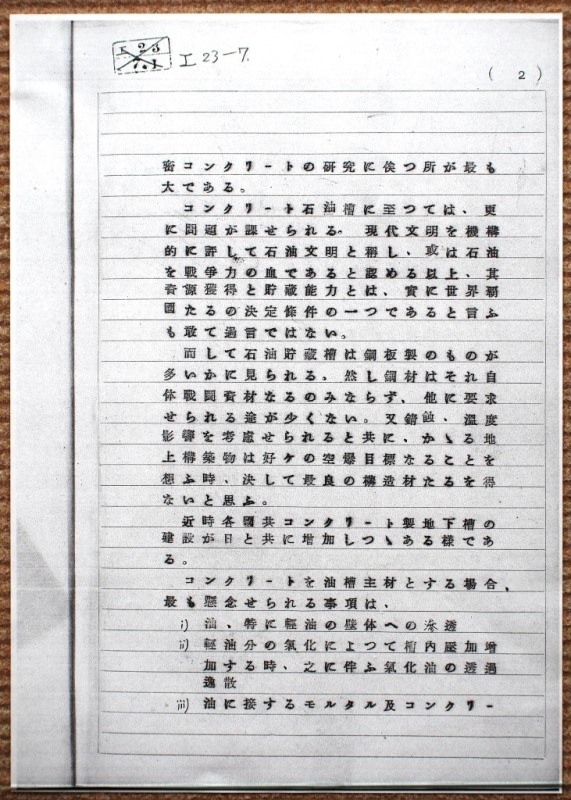 I 23-7.
( 2 )
密コンクリートの研究に俟つ所が最も
大である。
コンクリート石油槽に至つては、更
に問題が課せられる。現代文明を機構
的に評して石油文明と稱し、或は石油
を戦争力の血であると認める以上、其
資源獲得と貯蔵能力とは、實に世界覇
國たるの決定條件の一つであると言ふ
も敢て過言ではない。
而して石油貯蔵槽は鋼板製のものが
多いかに見られる、然し鋼材はそれ自
体戰闘資材なるのみならず、他に要求
せられる途が少くない。又錆蝕、溫度
影響を考慮せられると共に、かゝる地
上構築物は好ケの空爆目標なることを
想ふ時、決して最良の構造材たるを得
ないと思ふ。
近時各國共コンクリート製地下槽の
建設が日と共に增加しつゝある様であ
る。
コンクリートを油槽主材とする場合、
最も懸念せられる事項は、
i) 油、特に輕油の壁体への滲透
ii) 輕油分の氣化によつて槽内壓加增
加する時、之に伴ふ氣化油の透過
逸散
iii) 油に接するモルタル及コンクリー